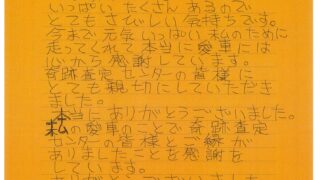 いっぱいたくさんあるので
とてもさびしい気持ちです。
今まで元気いっぱい私のために
走ってくれて本当に愛車には
心から感謝しています。
奇跡査定センターの皆様に
とても親切にしていただき
ました。
本当にありがとうございました。
私の愛車のことで奇跡査定
センターの皆様とご縁が
ありましたことを感謝を
しています。
ありがとうございました